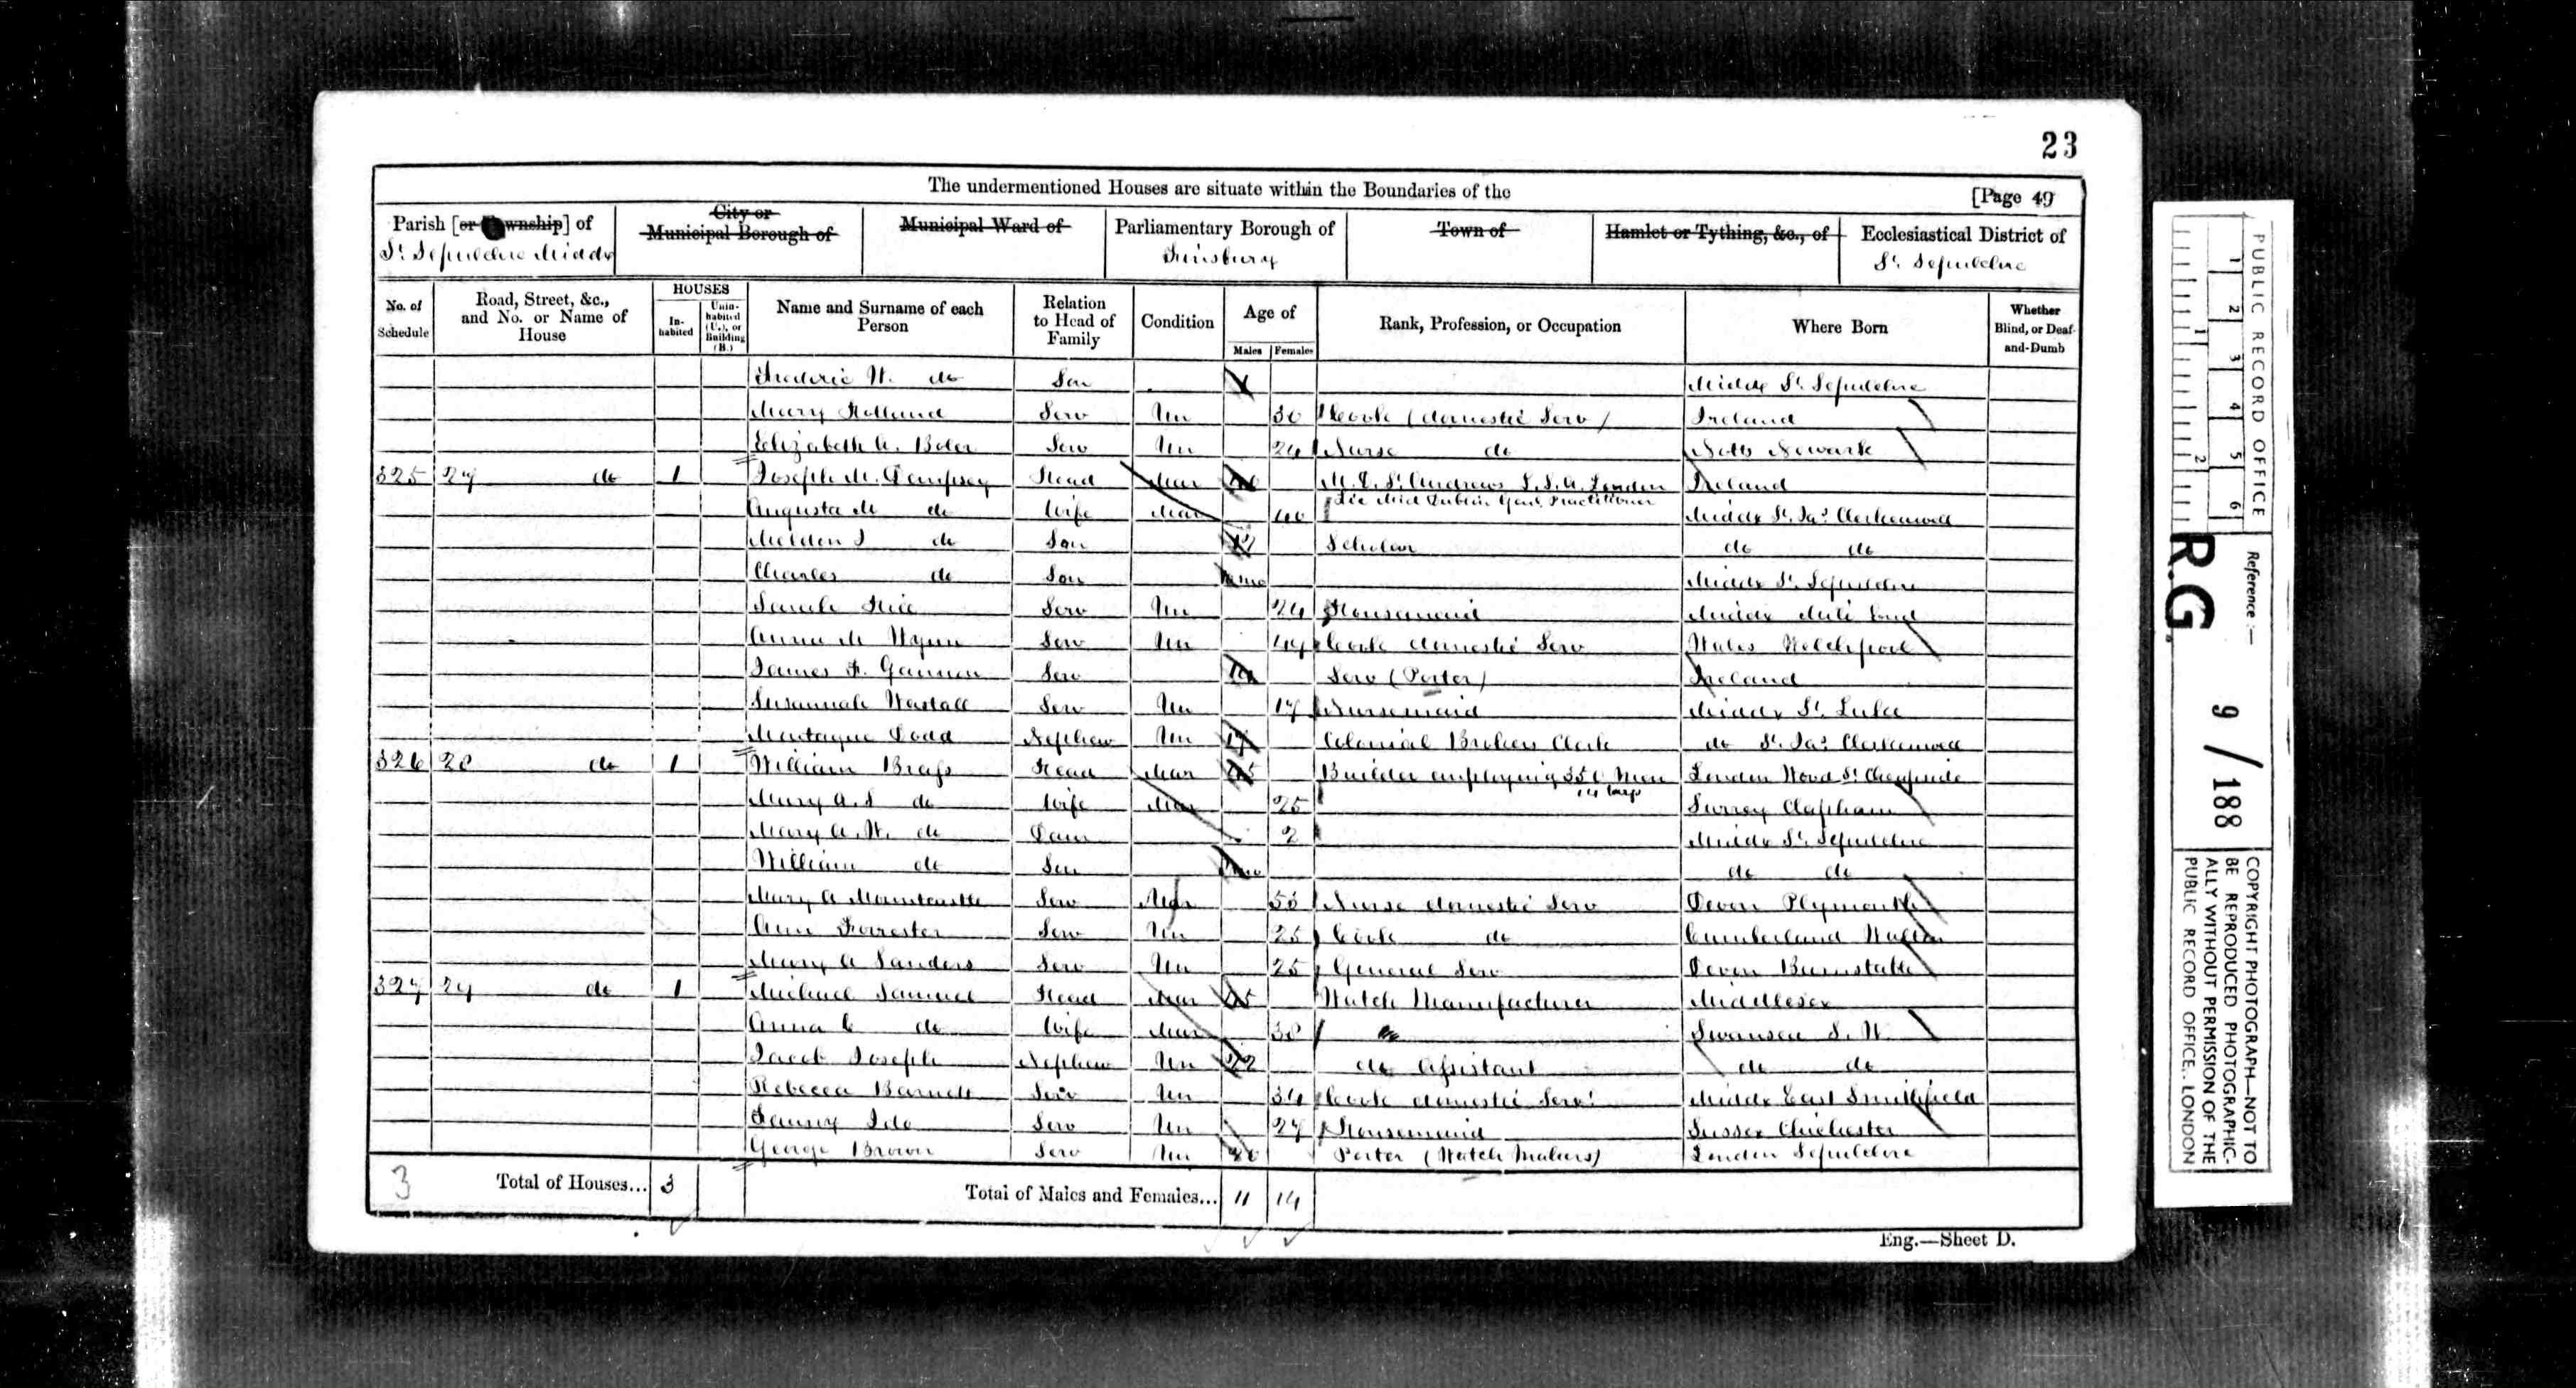 23
The undermentioned Houses are situate within the Boundaries of the
[Page 49
Parish [or Township] of
St Sepulchre Middx
City or
Municipal Borough of
Municipal Ward of
Parliamentary Borough of
Finsbury
Town of
Hamlet or Tything, &c., of
Ecclesiastical District of
St. Sepulchre
No. of Schedule
Road, Street, &c., and No. or Name of House
HOUSES
In-habited
Unin-habited (U.), or Building (B.)
Name and Surname of each Person
Relation to Head of Family
Condition
Age of
Males
Females
Rank, Profession, or Occupation
Where Born
Whether Blind, or Deaf-and-Dumb
Frederic W. do Son Middx St. Sepulchre
Mary Holland Serv Un 30 Cook (domestic Serv) Ireland
Elizabeth A. Boler Serv Un 24 Nurse do Notts Newark
325 27 do 1 Joseph M. Dempsey Head Mar M.D. St. Andrews L.S.A. London Ireland
Lic Mid Dublin Genl. Practitioner
Augusta M do Wife Mar 40 Middx St. Jas. Clerkenwell
Son Scholar do do
Charles do Son Middx St. Sepulchre
Sarah Serv Un 24 Housemaid Middx Mile End
Anna M Wynn Serv Un 44 Cook domestic Serv Wales Welchpool
James F. Gannon Serv Serv (Porter) Ireland
Susannah Wastall Serv Un 17 Nursemaid Middx St. Luke
Montague Dodd Nephew Un Colonial Brokers Clerk do St. Jas. Clerkenwell
326 28 do 1 William Brass Head Mar Builder employing 350 Men London Wood St. Cheapside
14 boys
Mary A. S do Wife Mar 25 Surrey Clapham
Mary A. W. do Daur 2 Middx St. Sepulchre
William do Son do do
Mary A Serv Mar Nurse domestic Serv Devon Plymouth
Ann Forrester Serv Un 25 Cook do Cumberland Walton
Mary A Sanders Serv Un 25 General Serv Devon Barnstable
327 29 do 1 Michael Samuel Head Mar Watch Manufacturer Middlesex
Anna C do Wife Mar 38 Swansea S. W.
Jacob Joseph Nephew Un 22 do Assistant do do
Rebecca Barnett Serv Un 34 Cook domestic Serv. Middx East Smithfield
Fanny Serv Un 27 Housemaid Sussex Chichester
George Brown Serv Un Porter (Watch Makers) London Sepulchre
3
Total of Houses... 3
Total of Males and Females... 11 14
Eng.—Sheet D.
PUBLIC RECORD OFFICE
1 2 3 4 5 6
1 2
Reference:—
R.G. 9 / 188
COPYRIGHT PHOTOGRAPH—NOT TO
BE REPRODUCED PHOTOGRAPHIC-
ALLY WITHOUT PERMISSION OF THE
PUBLIC RECORD OFFICE, LONDON